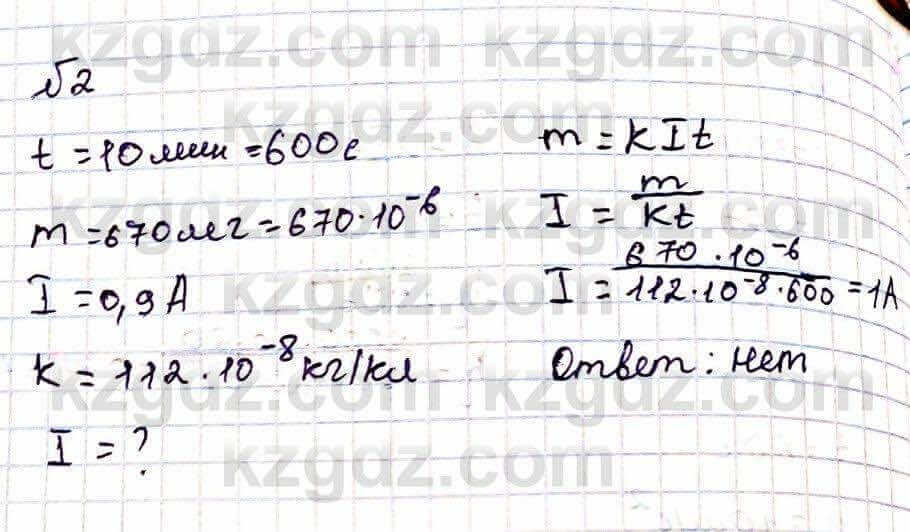 kzgdz.com kzgdz.com
№2
t = 10 мин = 600 с
m = 670 мг = 670·10⁻⁶
I = 0,9 А
k = 112·10⁻⁸ кг/кл
I = ?
m = kIt
I = m/kt
I = 670·10⁻⁶/112·10⁻⁸·600 = 1А
Ответ: нет
kzgdz.com kzgdz.com
kzgdz.com
kzgdz.com
kzgdz.com